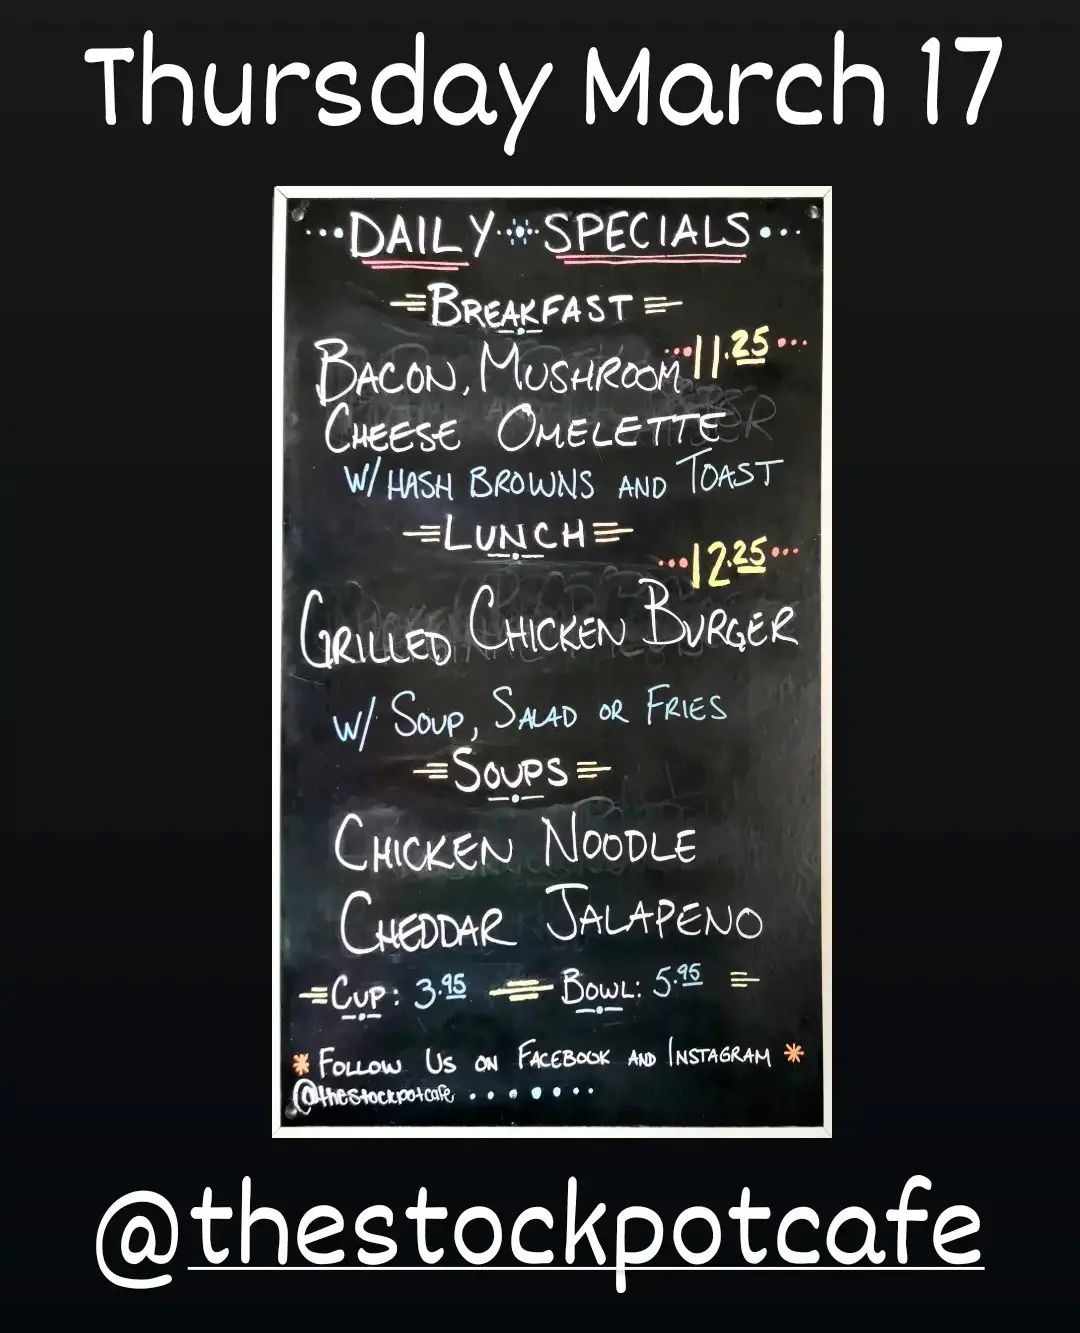 Thursday March 17
DAILY SPECIALS
BREAKFAST
BACON, MUSHROOM 11.25
CHEESE OMELETTE
W/ HASH BROWNS AND TOAST
LUNCH
12.25
GRILLED CHICKEN BURGER
W/ SOUP, SALAD OR FRIES
SOUPS
CHICKEN NOODLE
CHEDDAR JALAPENO
CUP: 3.95 BOWL: 5.95
* FOLLOW US ON FACEBOOK AND INSTAGRAM *
@thestockpotcafe
@thestockpotcafe